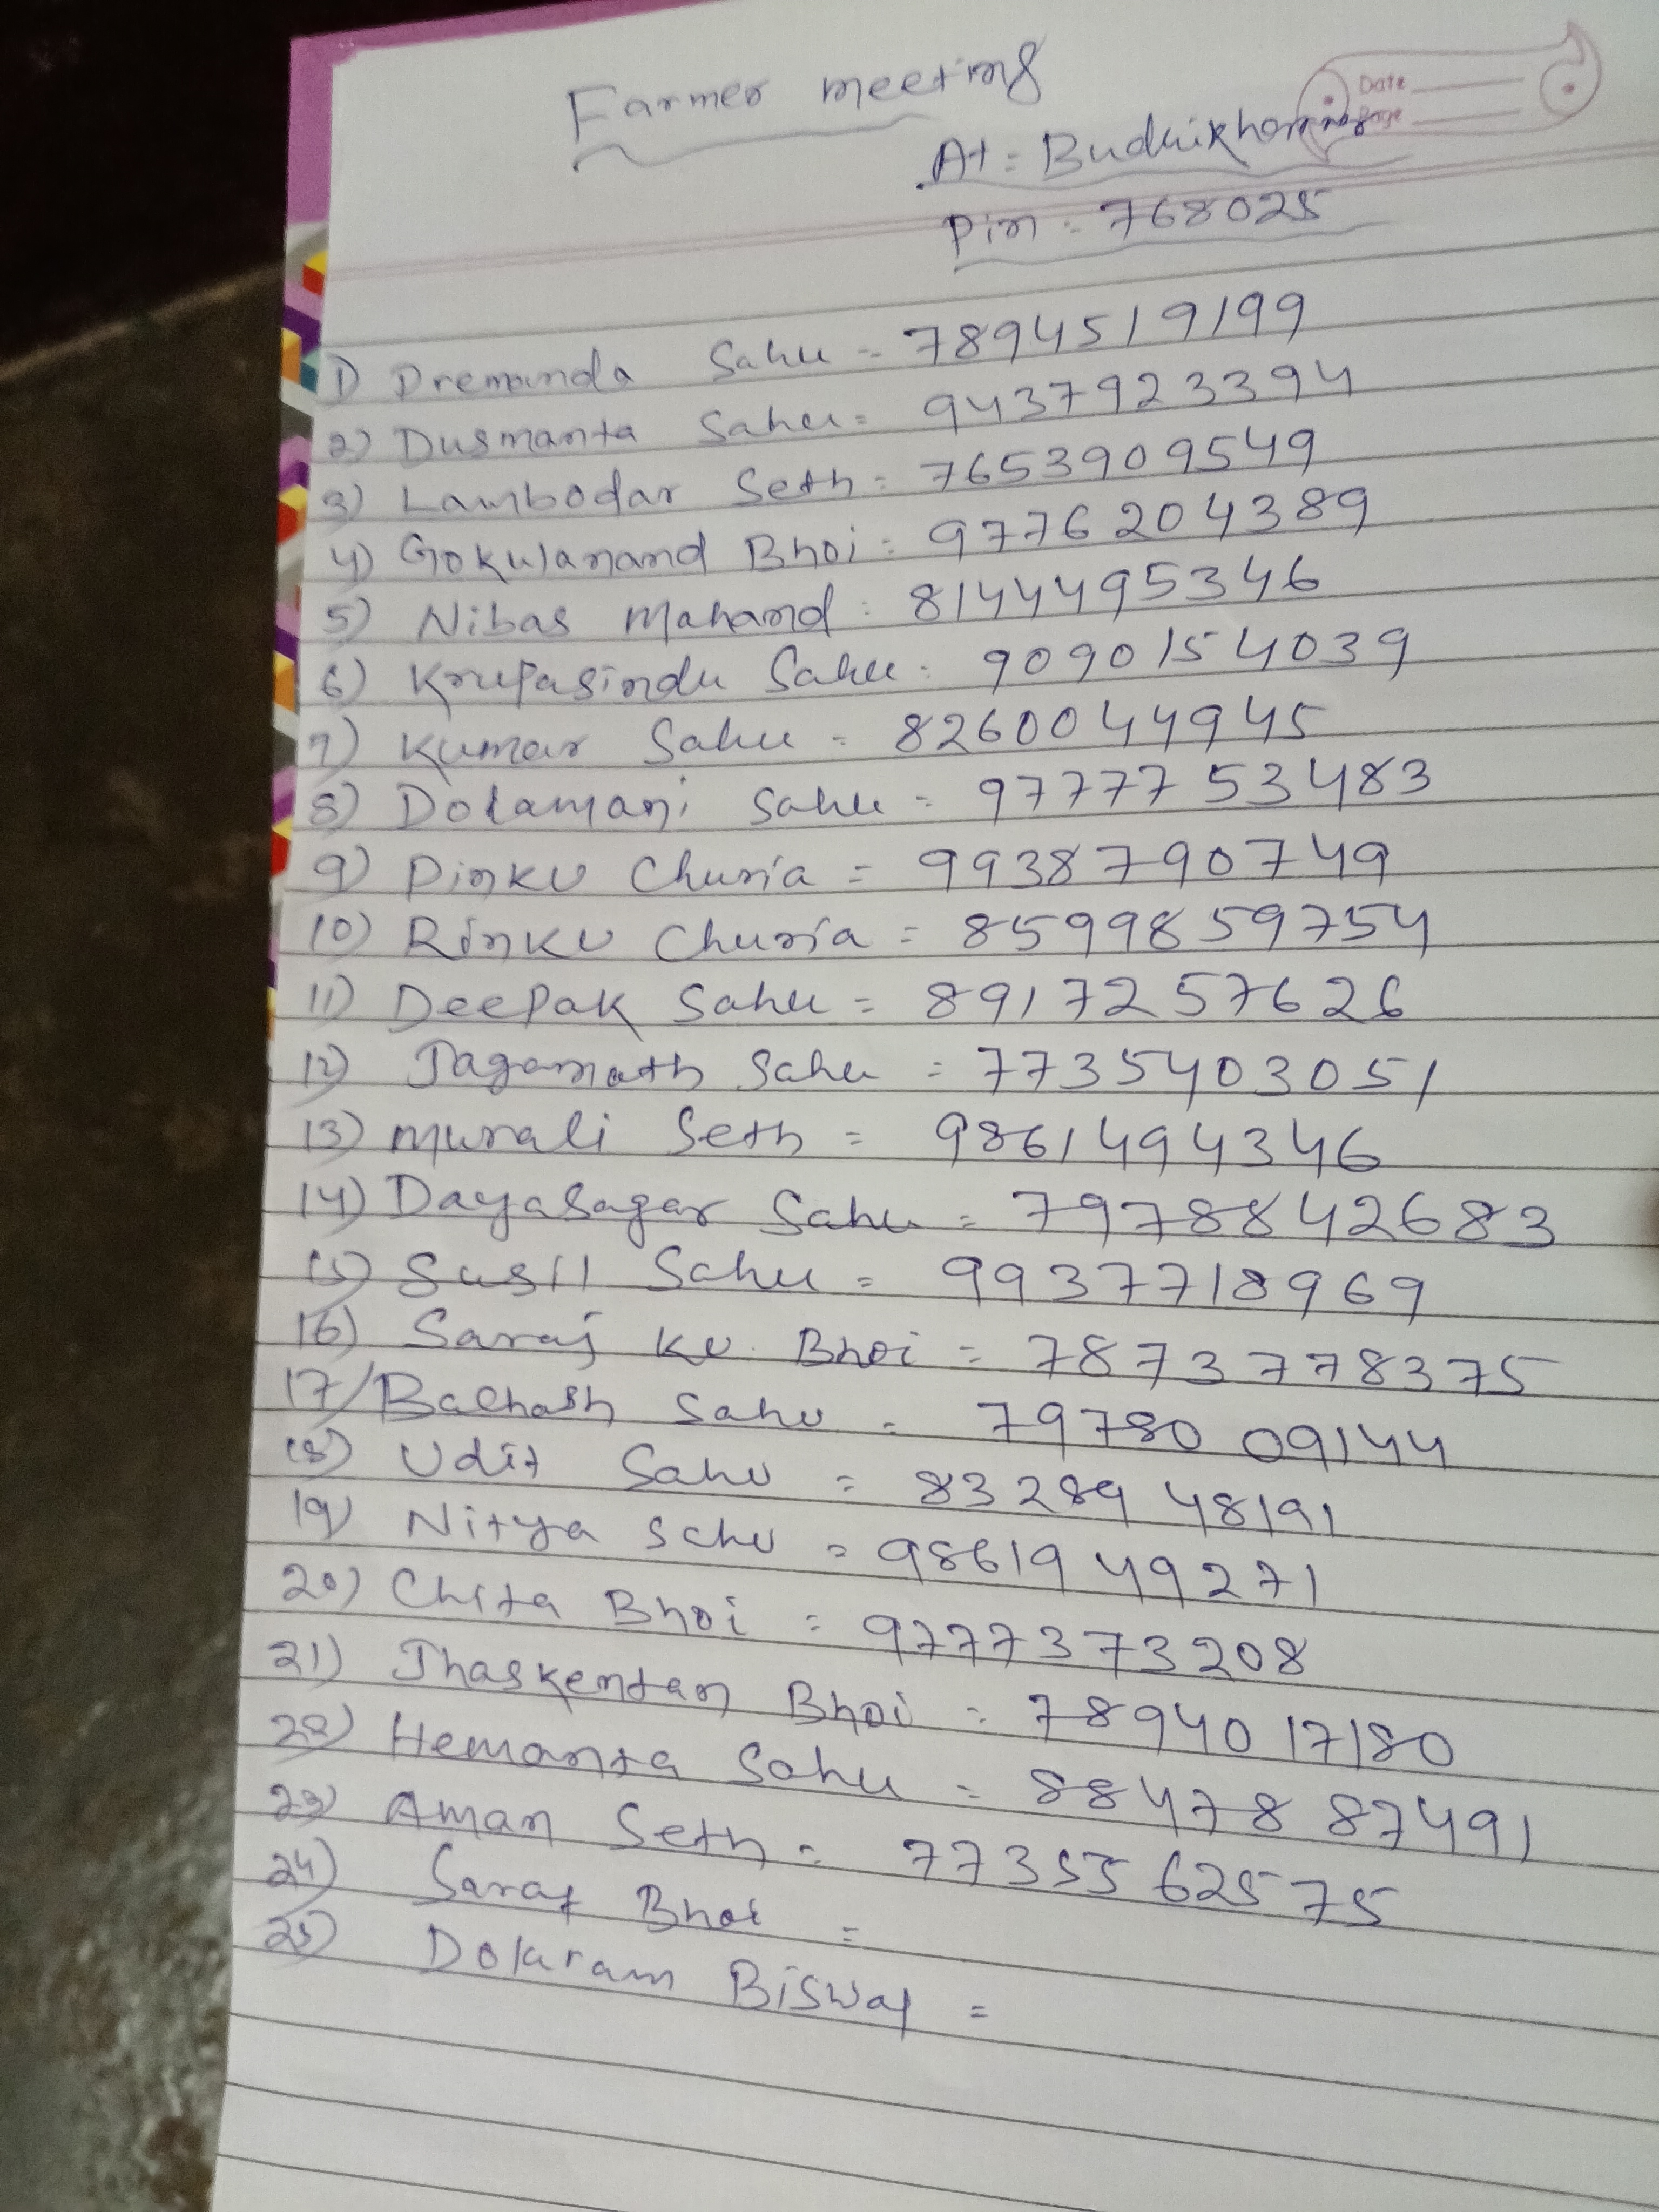 Farmer meeting
Date
Page
At = Budhikhamar
Pin : 768025
1) Premananda Sahu = 7894519199
2) Dusmanta Sahu = 9437923394
3) Lambodar Seth = 7653909549
4) Gokulanand Bhoi = 9776204389
5) Nibas Mahand : 8144495346
6) Krupasindu Sahu = 9090154039
7) Kumar Sahu = 8260044945
8) Dolamani Sahu = 9777753483
9) Pinku Churia = 9938790749
10) Rinku Churia = 8599859754
11) Deepak Sahu = 8917257626
12) Jaganath Sahu = 7735403051
13) Murali Seth = 9861494346
14) Dayasagar Sahu = 7978842683
15) Susil Sahu = 9937718969
16) Saraj Ku. Bhoi = 7873778375
17) Sahu = 79780 09144
18) Udit Sahu = 83289 48191
19) Nitya Sahu = 98619 49271
20) Chita Bhoi = 9777373208
21) Jhasketan Bhoi = 78940 17180
22) Hemanta Sahu = 88478 87491
23) Aman Seth = 77355 62575
24) Saraj Bhoi =
25) Dolaram Biswal =